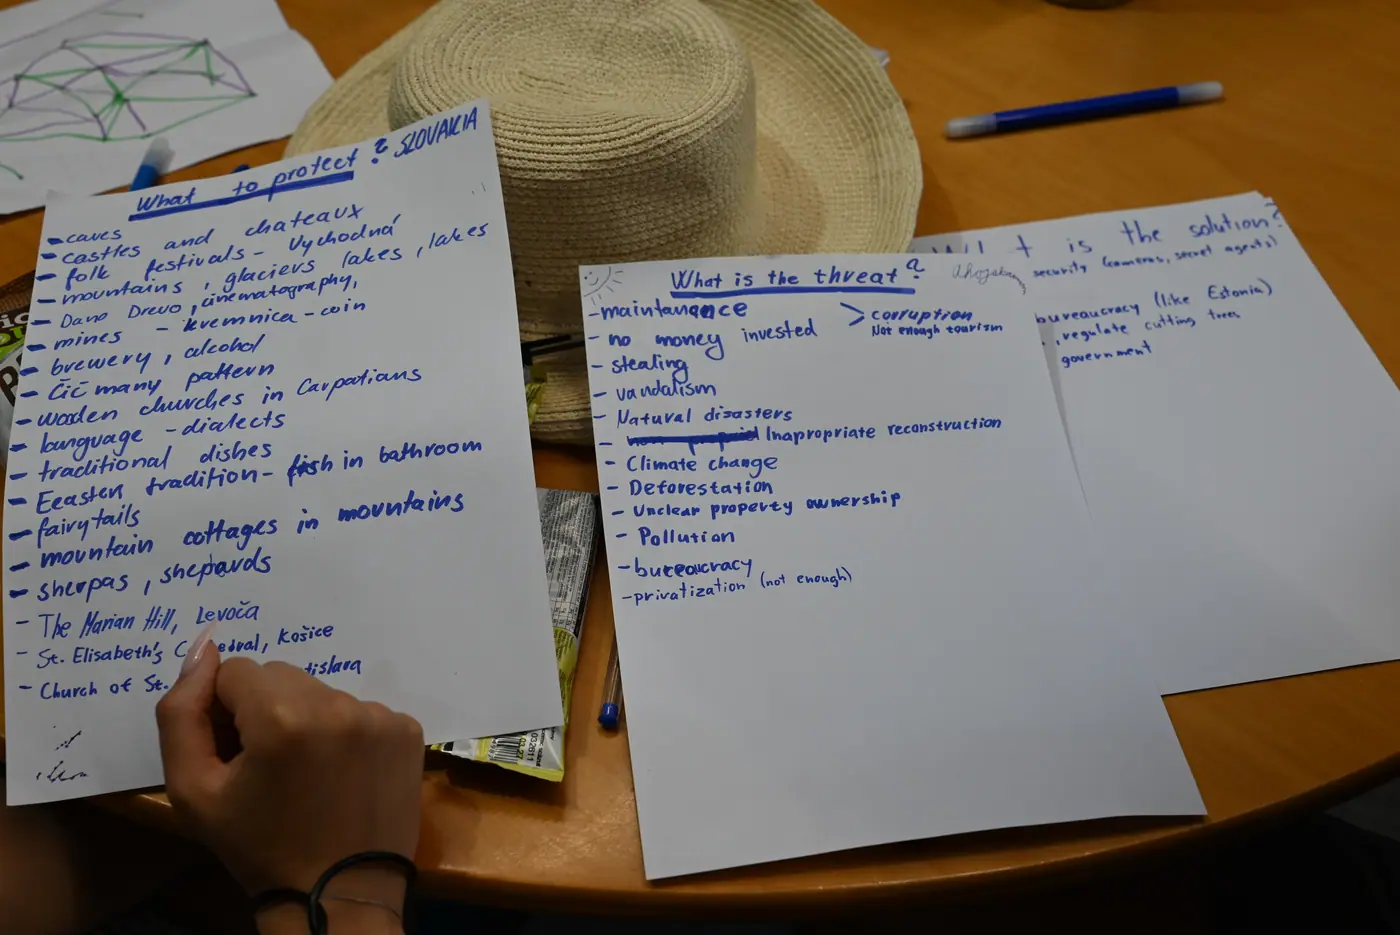 What to protect? SLOVAKIA
- caves
- castles and chateaux
- folk festivals - Východná
- mountains, glaciers lakes, lakes
- Dano Drevo, cinematography,
- mines - kremnica - coin
- brewery, alcohol
- Čičmany pattern
- wooden churches in Carpatians
- language - dialects
- traditional dishes
- Eeasten tradition - fish in bathroom
- fairytails
- mountain cottages in mountains
- sherpas, shepards
- The Marian Hill, Levoča
- St. Elisabeth's Cathedral, Košice
- Church of St.
What is the threat?
- maintanance
- no money invested > corruption
Not enough tourism
- stealing
- vandalism
- Natural disasters
- Inapropriate reconstruction
- Climate change
- Deforestation
- Unclear property ownership
- Pollution
- bureaucracy
- privatization (not enough)
is the solution?
security (cameras, secret agents)
bureaucracy (like Estonia)
, regulate cutting trees
government